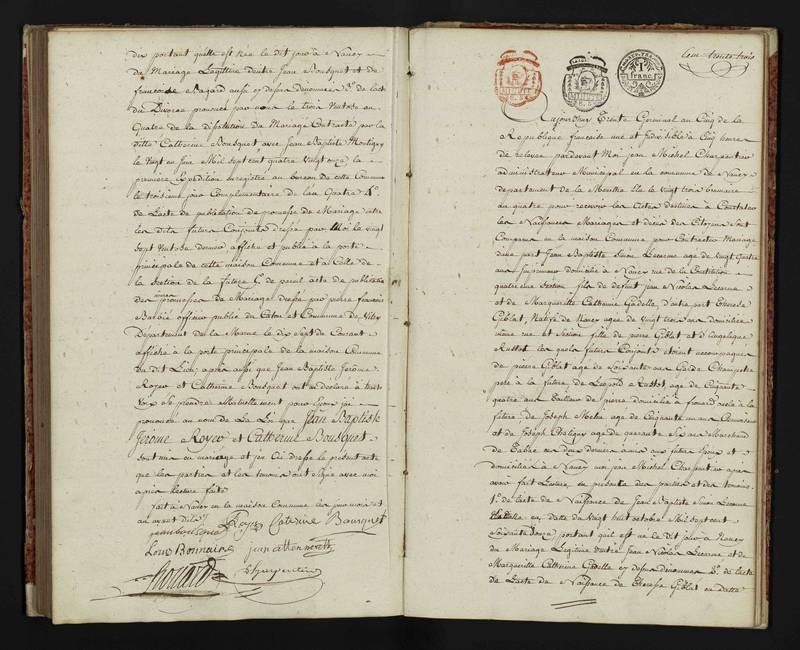 dix portant quelle est née le dit jour à Nancy
du Mariage Légitime d'entre Jean Bousquet et de
françoise Bagard aussi cy dessus dénommés 3.° de lacte
du Divorce prononcé par nous le trois Ventose an
Quatre de la dissolution du Mariage Contracté par la
ditte Catherine Bousquet avec Jean Baptiste Montigny
le Vingt en Juin Mil Sept cent quatre Vingt onze la
première Expédition enregistré au bureau de cette Commune
le troisieme jour Complementaire de lan Quatre 4.°
de Lacte de publication de promesse de Mariage entre
les dits futurs Conjoints dressé par Moi le vingt
Sept Ventose dernier affiché et publié à la porte
principale de cette maison Commune et à Celle de
la Section de la future 5.° de pareil acte de publication
des promesses de Mariage dressé par pierre françois
Barbié officier public du Canton et Commune de Vitry
Département de la Marne le dix Sept du Courant
affiché à la porte principale de la maison Commune
du dit Lieu, après aussi que Jean Baptiste Jérome
Royer et Catherine Bousquet ont eu déclaré à haute
Voix Se prendre Mutuellement pour Epoux jai
prononcé au nom de la Loi que Jean Baptiste
Jérome Royer et Catherine Bousquet
sont unis en mariage et jai Ci dressé le présent acte
que les parties et les temoins ont Signé avec moi
après lecture faite
fait à Nancy en la maison Commune les jour mois et
an avant dits
Royer Caterine Bousquet
Louis Bonnaire jean
Charpentier
Cent trente trois
1
franc
Aujourdhui trente Germinal an Cinq de la
République française une et Indivisible à Cinq heures
de relevée pardevant Moi jean Michel Charpentier
administrateur Municipal en la commune de Nancy
département de la Meurthe Elu le vingt trois brumaire
an quatre pour recevoir les Actes destinés à Constater
les Naissances Mariages et décès des Citoyens Sont
Comparus en la maison Commune pour Contracter Mariage
dune part Jean Baptiste Simon Lecerne agé de Vingt Quatre
ans domicilié à Nancy rue de la Constitution
quatrieme Section fils de defunt jean Nicolas Lecerne
et de Marguerite Catherine Gadelle d'autre part Therese
Giblot, Native de Nancy agée de Vingt trois ans domiciliée
même rue et Section fille de pierre Giblot et d'angelique
Russot les quels futurs Conjoints étoient accompagnés
de pierre Giblot agé de Soixante ans Garde Champetre
père à la future, de Léopold Russot, agé de Cinquante
quatre ans tailleur de pierre domicilié à frouard oncle à la
future de Joseph agé de Cinquante un ans
et de Joseph Chatigny agé de quarante Six ans Marchand
de tabac ces deux derniers amis aux futurs Epoux et
domiciliés à Nancy moi jean Michel Charpentier après
avoir fait Lecture en présence des parties et des temoins
1.° de lacte de Naissance de Jean Baptiste Simon Lecerne
en datte du Vingt huit octobre Mil Sept cent
Soixante douze portant quil est né le dit jour à Nancy
du Mariage Légitime d'entre Jean Nicolas Lecerne et de
Marguerite Catherine Gadelle cy dessus dénommés 2.° de lacte
de Lacte de Naissance de Therese Giblot en datte